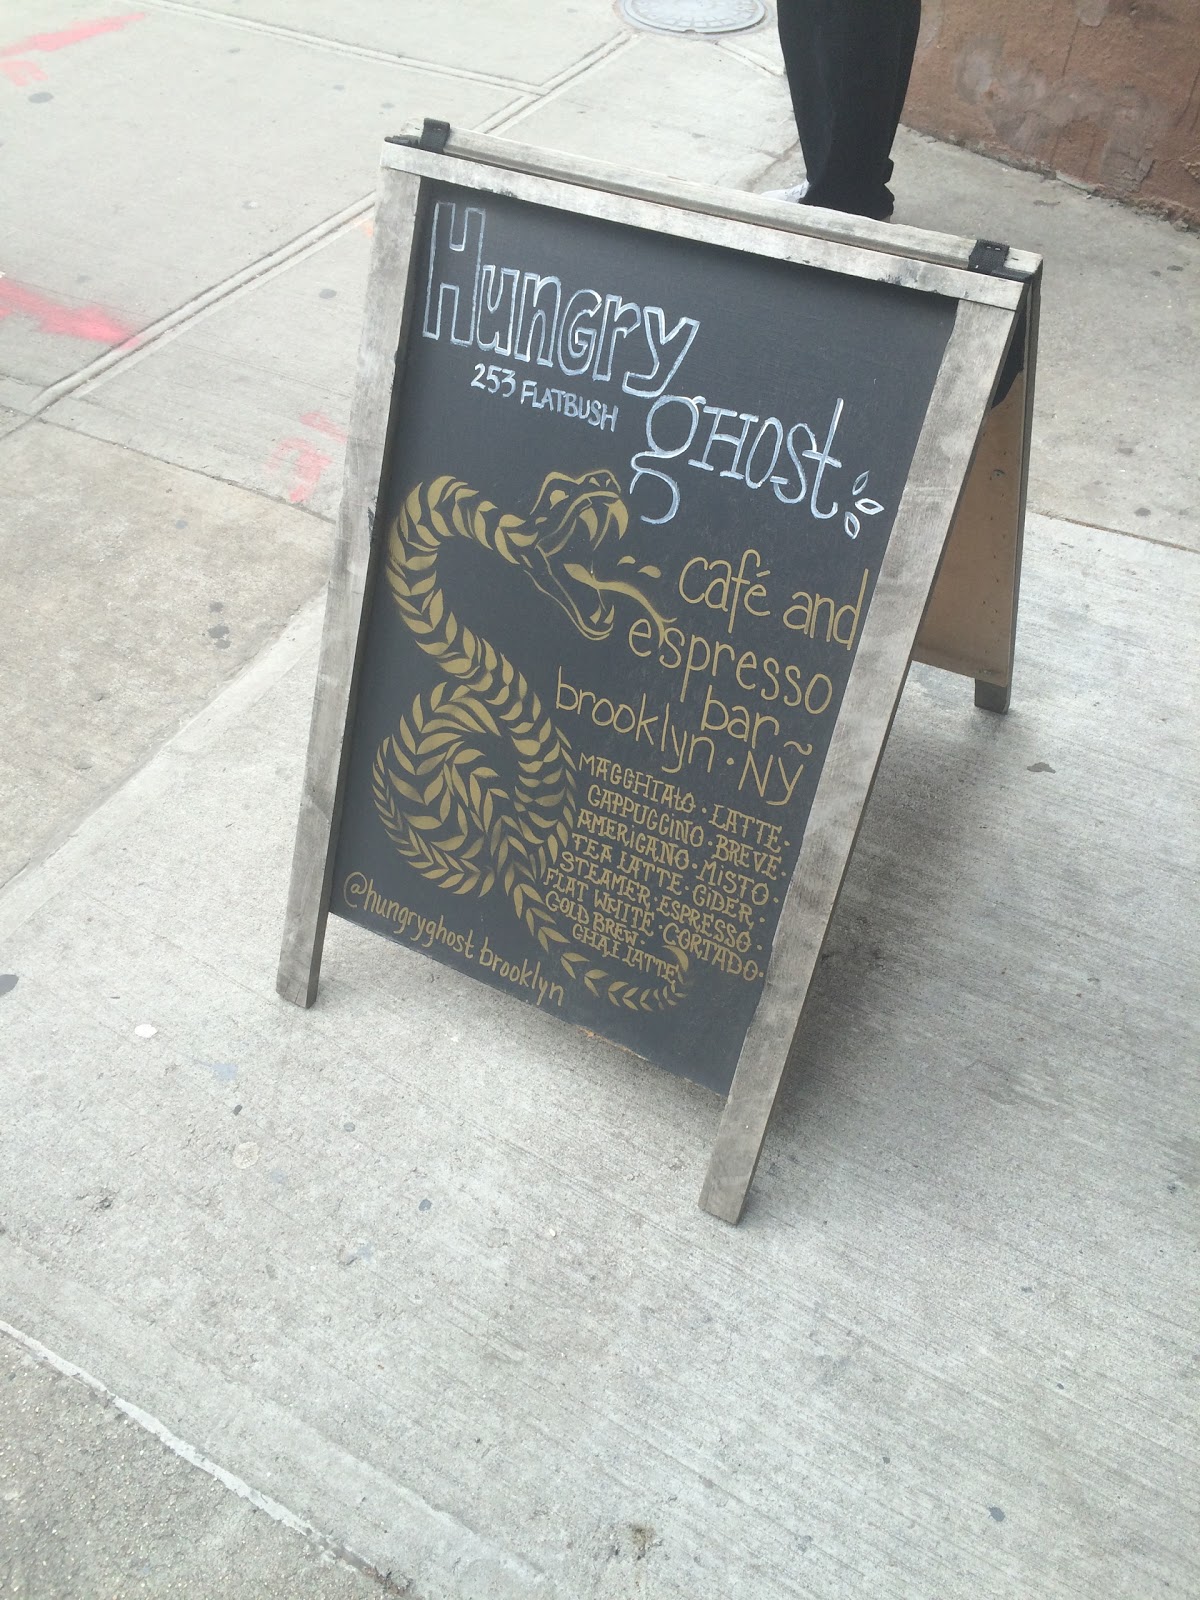 Hungry
253 FLATBUSH
gHOst
café and
espresso
bar~
brooklyn · NY
MACCHIAtO · LATTE ·
CAPPUCCINO · BREVE ·
AMERiCANO · MiSTO ·
TEA LATTE · CiDER ·
STEAMER · ESPRESSO ·
FLAT WHITE · CORTADO ·
COLD BREW ·
CHAI LATTE
@hungryghost brooklyn